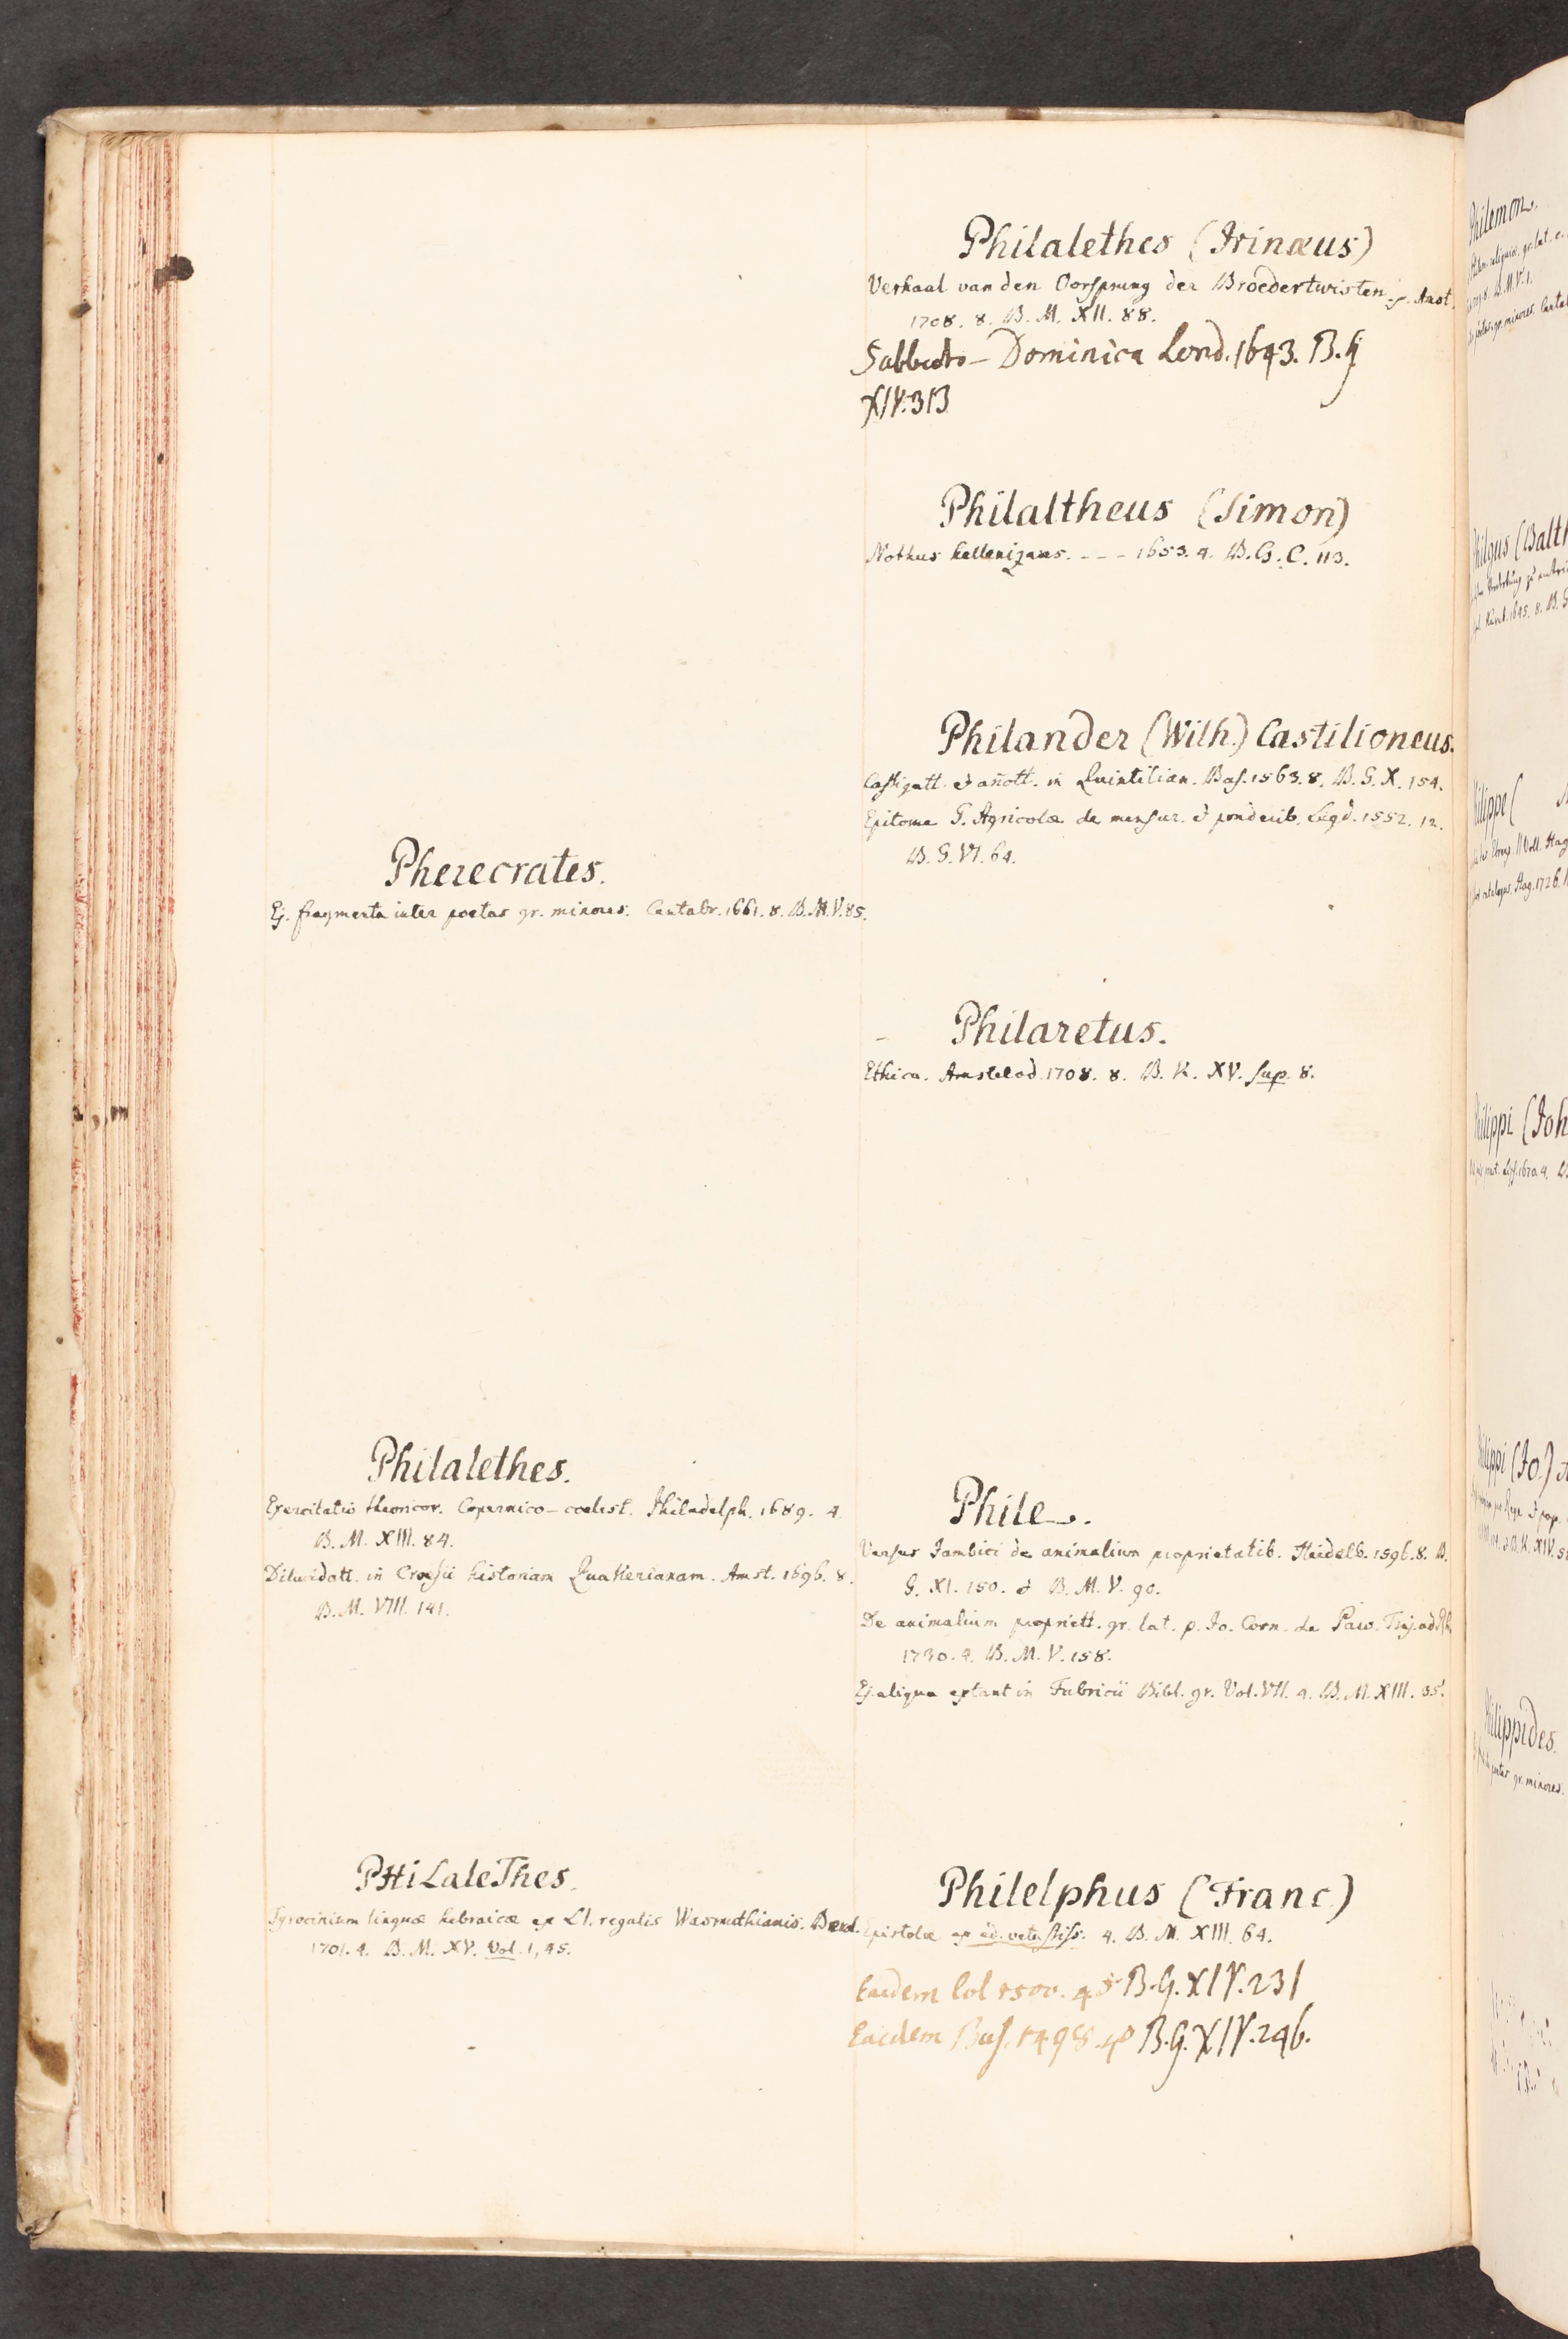 Pherecrates.
Ej. fragmenta inter poetas gr. minores. Cantabr. 1661. 8. B. M. V. 85.
Philalethes.
Exercitatio theoricor. Copernico-coelest. Philadelph. 1689. 4.
B. M. XIII. 84.
Dilucidatt. in Croesii historiam Quakerianam. Amst. 1696. 8.
B. M. VIII. 141.
PHiLaleThes.
Tyrocinium linguæ hebraicæ ex LI. regulis Wasmuthianis.
1701. 4. B. M. XV. Vol. 1, 45.
Philalethes (Irinæus)
Verhaal van den Oorsprung der Broedertwisten. Amst.
1708. 8. B. M. XII. 88.
Sabbato-Dominica Lond. 1643. B. G.
XIV. 313
Philaltheus (Simon)
Nothus hellenizans. - - - 1653. 4. B. G. C. 113.
Philander (Wilh.) Castilioneus.
Castigatt. & anott. in Quintilian. Bas. 1563. 8. B. G. X. 154.
Epitome G. Agricolæ de mensur. & ponderib. Lugd. 1552. 12.
B. G. VI. 64.
Philaretus.
Ethica. Amstelod. 1708. 8. B. K. XV. sup. 8.
Phile.
Versus Iambici de animalium proprietatib. Heidelb. 1596. 8. B.
G. XI. 150. & B. M. V. 90.
De animalium propriett. gr. lat. p. Jo. Corn. de Paw. Traj. ad Rh.
1730. 4. B. M. V. 158.
Ej. aliqua extant in Fabricii Bibl. gr. Vol. VII. 4. B. M. XIII. 35.
Philelphus (Franc)
Epistolæ ex ed. vetustiss. 4. B. M. XIII. 64.
Eaedem Col 1500. 4° B. G. XIV. 231
Eaedem Bas. 1498. 4° B. G. XIV. 246.
Philemon.
Philippe (
Philippi (Joh
Philippi (Jo.)
Philippides.